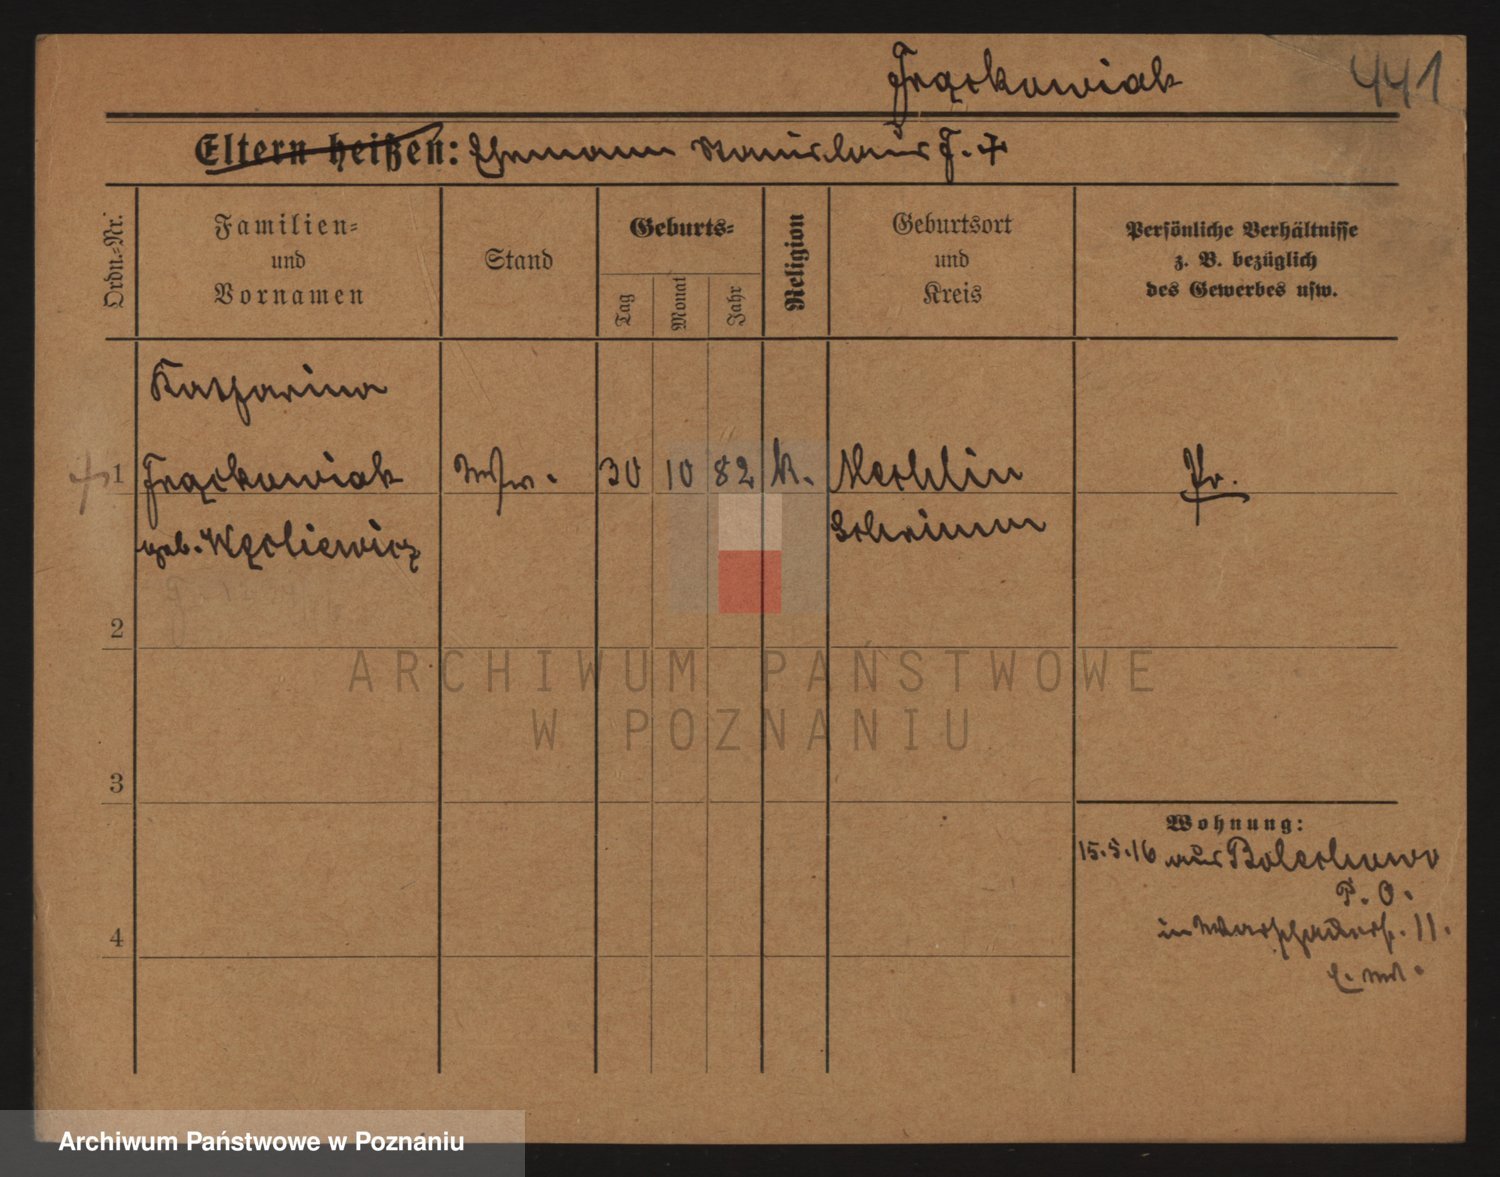 Frąckowiak
441
Eltern heißen: Ehemann Stanislaus F. +
Ordn.-Nr.
Familien-
und
Vornamen
Stand
Geburts-
Tag
Monat
Jahr
Religion
Geburtsort
und
Kreis
Persönliche Verhältnisse
z. B. bezüglich
des Gewerbes usw.
Katharina
1 Frąckowiak Wtw. 30 10 82 k. Mechlin Pr.
geb. Węcliewicz Schrimm
2
ARCHIWUM PAŃSTWOWE
W POZNANIU
3
Wohnung:
15.5.16 aus Bolechowo
P. O.
4
in Warschauerstr. 11.
Archiwum Państwowe w Poznaniu